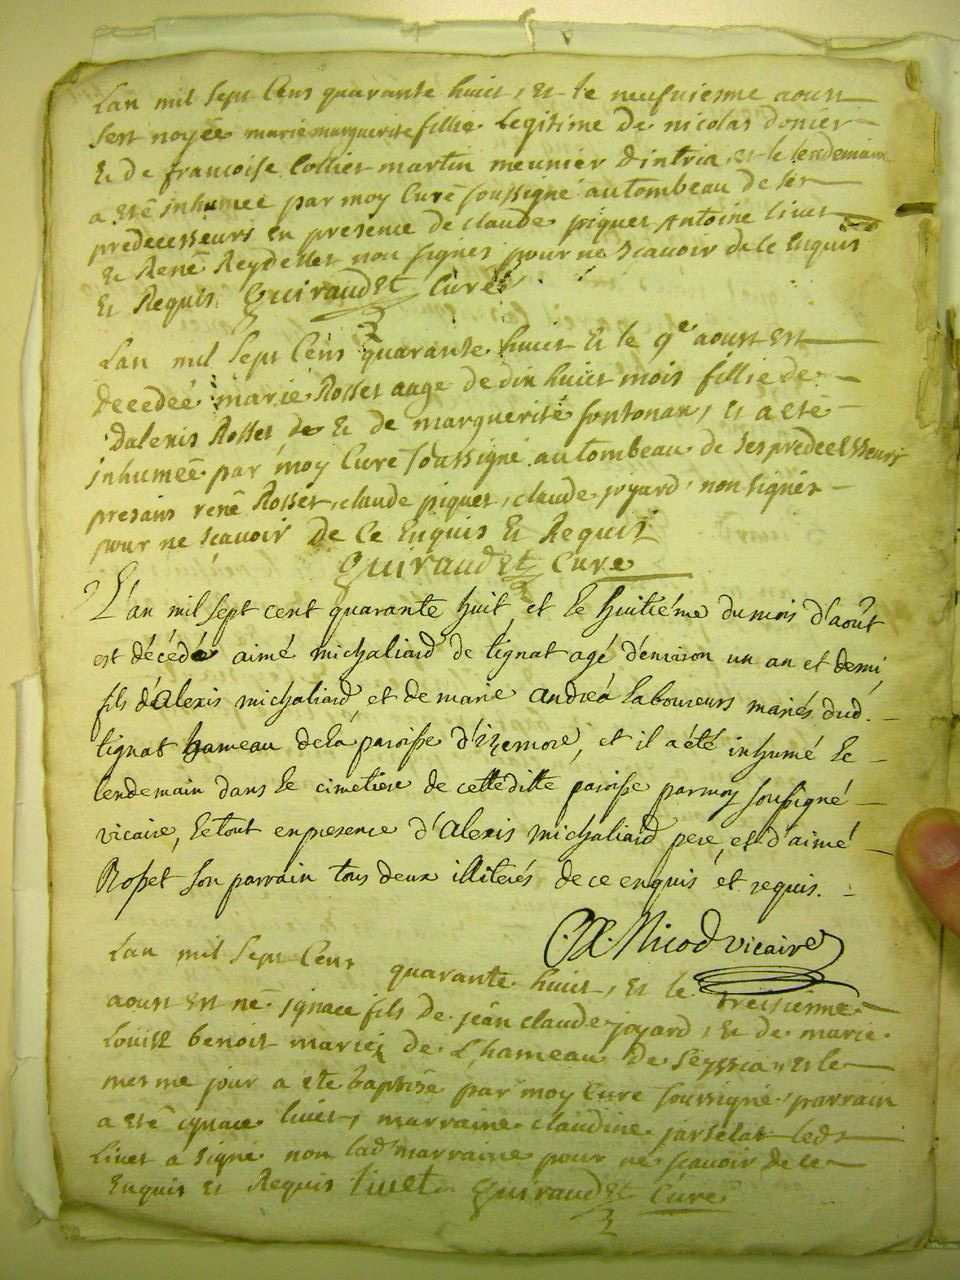 Lan mil Sept Cens quarante huict, Et le neufviesme aoust
sest noyée marie marguerite fillie Legitime de nicolas donier
& de francoise Collier martin meunier dintria, et le lendemain
a esté inhumée par moy Curé soussigné au tombeau de ses
predecesseurs En presence de claude piquet Antoine livet
& René Reydellet non signes pour ne scavoir de ce Enquis
Et Requis. Quiraudet Curé
Lan mil Sept Cens quarante huict & le 9e aoust Est
decedée marie Rosset aage de dix huict mois fillie de
Dalexis Rosset de & de marguerite fontonax, et a eté
inhumée par moy Curé soussigné au tombeau de ses predecesseurs
presans rené Rosset, claude piquet, claude joyard, non signés
pour ne scavoir de Ce Enquis Et Requis
Quiraudet Cure
L'an mil sept cent quarante huit et le huitiéme du mois d'août
est décédé aimé michaliard de tignat agé d'environ un an et demi
fils d'Alexis michaliard, et de marie andréa laboureurs mariés dud.
tignat hameau de la paroisse d'izernore, et il a été inhumé le
lendemain dans le cimetiere de cette ditte paroisse par moy soussigné
vicaire, le tout en presence d'Alexis michaliard pere, et d'aimé
Rosset son parrain tous deux illiterés de ce enquis et requis.
Nicod vicaire
Lan mil Sept Cens quarante huict, Et le treisieme
aoust Est né ignace fils de jean claude joyard, & de marie
Louise benoit mariez de L'hameau de Seyssia, et le
mesme jour a ete baptisé par moy Curé soussigné, parrain
a esté ignace livet, marraine claudine jarselat led
Livet a signé non lad marraine pour ne scavoir de ce
Enquis Et Requis livet Quiraudet Curé